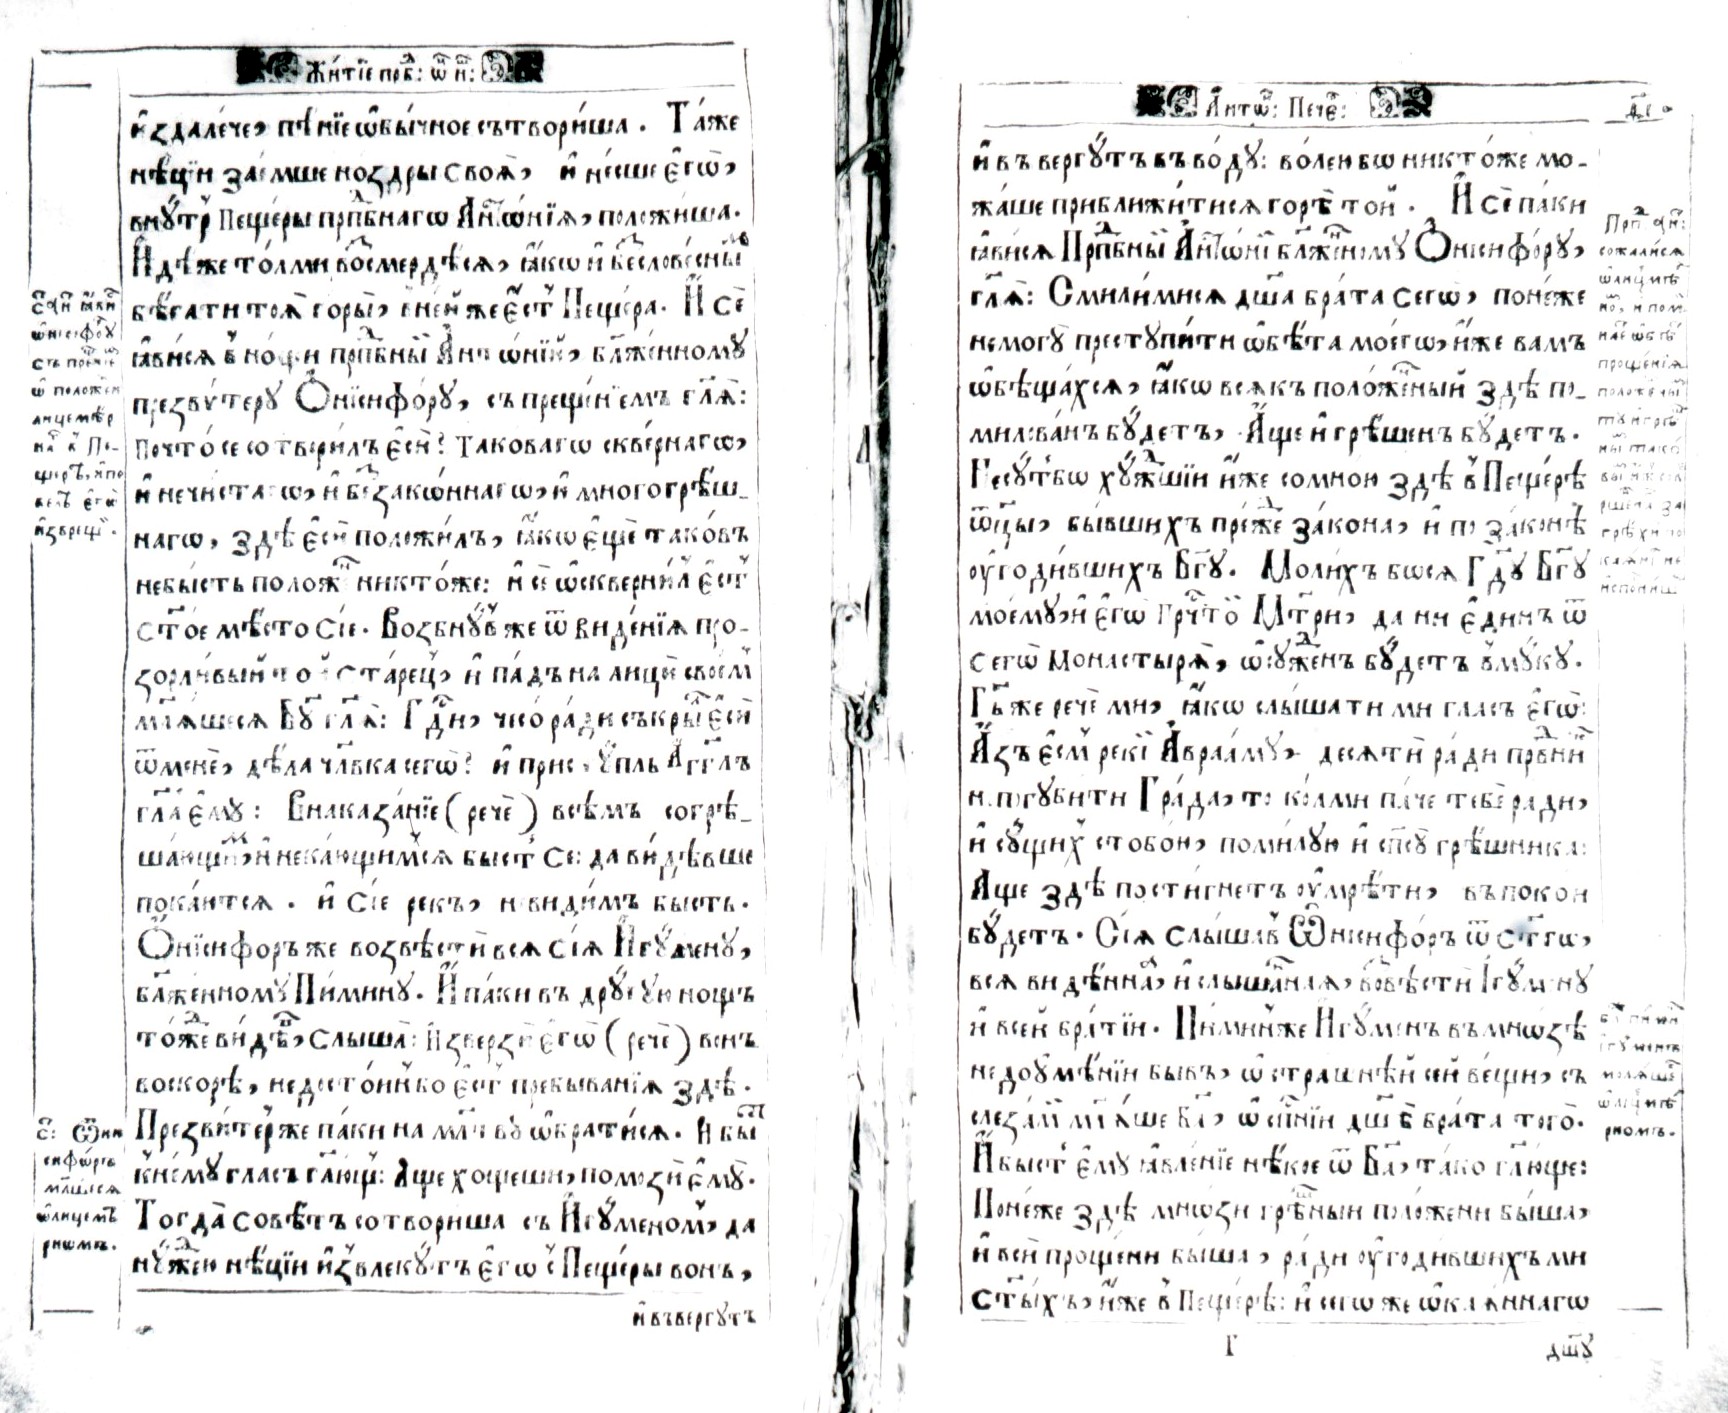 Жи́тїе прⷣб: ѿц҃ъ:
и҆ здале́че, пѣ́нїе ѡ҆бы́чное сътвори́ша. Та́же
нѣ́цїи зае́мше но́здры своя̀, и҆ не́сше є҆гѡ̀,
внꙋ́трⸯ Пеще́ры прпⷣбнагѡ А҆нтѡ́нїѧ, положи́ша.
И҆дѣ́же то́лми восмердѣ́сѧ, ꙗ҆́кѡ и҆ бесловесны́мⸯ
бѣ́гати тоѧ̀ горы̀, в не́йже є҆́стⸯ Пеще́ра. И҆ сѐ
ꙗ҆ви́сѧ в но́щи прпⷣбный А҆нтѡ́нїй, блаже́нному
презвѵ́теру Ѻ҆нїсифо́ру, съ преще́нїемъ гл҃ѧ:
Почто́ се сотвори́лъ є҆сѝ? Такова́гѡ скве́рнагѡ,
и҆ нечи́стагѡ, и҆ беззако́ннагѡ, и҆ многогрѣ́ш_
нагѡ, здѣ̀ є҆сѝ положи́лъ, ꙗ҆́кѡ є҆щѐ тако́въ
не бы́сть положе́нъ никто́же: и҆ сѐ ѡ҆скверни́лⸯ є҆́стⸯ
ст҃о́е мѣ́сто сїѐ. Возбнꙋ́в же ѿ видѣ́нїѧ про_
зорли́вый то́й ста́рецⸯ, и҆ па́дъ на лицѐ свое́мⸯ
мл҃ѧ́шесѧ Бг҃ꙋ гл҃ѧ: Гдⷭ҇и, чесо̀ ра́ди съкры́лⸯ є҆сѝ
ѿ менѐ, дѣ́ла чл҃вка сегѡ̀? и҆ присту́пль А҆́гг҃лъ
гл҃а є҆мꙋ̀: В наказа́нїе (речѐ) всѣ́мъ согрѣ_
ша́ющимⸯ, и҆ нека́ющимсѧ бы́стⸯ се: да ви́дѣвше
пока́ются. и҆ сїѐ ре́къ, неви́димъ бы́сть.
Ѻ҆нїсифо́ръ же возвѣстѝ всѧ̀ сїѧ̀ И҆гꙋ́мену,
блаже́нному Пи́мину. И҆ па́ки въ другꙋ́ю но́щь
то́жде ви́дѣⷩ, слы́ша: И҆зве́рзи є҆гѡ̀ (речѐ) во́нъ
воско́рѣ, недосто́инⸯ бо є҆́стⸯ пребыва́нїѧ здѣ̀.
Презви́терⸯ же па́ки на мл҃твꙋ ѡ҆брати́сѧ. И҆ бы́стⸯ
к не́мꙋ гла́съ гл҃ющⸯ: А҆́ще хо́щеши, помозѝ є҆мꙋ̀.
Тогда̀ совѣ́тъ сотвори́ша съ И҆гꙋ́меномⸯ, да
нꙋ́ждею нѣ́цїи и҆звлекꙋ́тъ є҆гѡ̀ с Пеще́ры во́нъ,
и҆ въве́ргутъ
ѡ҆нисифо́рꙋ
ѡ҆ положе́н
лицемѣ́р
Пе_
щерѣ,
ст҃: Ѡ҆ни
сифо́ръ
мл҃ѧ́шесѧ
ѡ҆ лицемѣ
рномъ.
А҆нтѡ: Пече:
и҆ въве́ргꙋтъ въ во́дꙋ: во́лею бѡ никто́же мо_
жа́ше прибли́житисѧ горѣ̀ то́й. И҆ сѐ па́ки
ꙗ҆ви́сѧ Прпⷣбный А҆нтѡ́нїй бл҃же́нному Ѻ҆нисифо́ру,
гл҃ѧ: Смили́мисѧ дш҃а̀ бра́та сегѡ̀, поне́же
не могꙋ̀ преступи́ти ѡ҆бѣ́та моегѡ̀, и҆́же ва́мъ
ѡ҆бѣща́хсѧ, ꙗ҆́кѡ всѧ́къ положе́ный здѣ̀ по_
ми́лованъ бꙋ́детъ, А҆́ще и҆ грѣ́шенъ бꙋ́детъ.
Не сꙋ́ть бѡ хꙋ́ждшїи и҆́же со мно́ю здѣ̀ в Пеще́рѣ
ѿцы̀, бы́вшихъ пре́жде зако́на, и҆ по зако́нѣ
оу҆годи́вшихъ Бг҃ꙋ. Моли́хъ бѡсѧ Гдⷭ҇ꙋ Бг҃ꙋ
моемꙋ̀, и҆ є҆гѡ̀ Прⷱ҇той Мт҃ри, да ни є҆ди́нъ ѿ
сегѡ̀ монастырѧ̀, ѡ҆сꙋжде́нъ бꙋ́детъ в мꙋ́кꙋ.
Гдⷭ҇ь же речѐ ми, ꙗ҆́кѡ слы́шати ми гла́съ є҆гѡ̀:
А҆́зъ є҆́смⸯ реки́й А҆враа́му, десѧти́ ра́ди прⷣвнⸯи
не погꙋби́ти Гра́да, то ко́лми па́че тебѐ ра́ди,
и҆ сꙋ́щихⸯ с тобо́ю, поми́лую и҆ сп҃сꙋ̀ грѣ́шника:
А҆́ще здѣ̀ пости́гнетъ оу҆мрѣ́ти, въ поко́и
бꙋ́детъ. Сїѧ̀ слы́шавⸯ Ѡ҆нисифо́ръ ѿ ст҃гѡ,
всѧ̀ ви́дѣннаѧ, и҆ слы́шаннаѧ, возвѣстѝ И҆гꙋ́мену
и҆ все́й бра́тїи. Пи́мин же И҆гꙋ́менъ въ мно́зѣ
недоꙋмѣ́нїи бы́въ, ѡ҆ стра́шнѣй се́й ве́щи, съ
слеза́ми мл҃ѧ́ше Бг҃а, ѡ҆ сп҃се́нїи дш҃ѐ бра́та того̀.
И҆ бы́стⸯ є҆мꙋ̀ ꙗ҆вле́нїе нѣ́кое ѿ Бг҃а, та́ко гл҃юще:
Поне́же здѣ̀ мно́зи грѣ́шныи положе́ни бы́ша,
и҆ всѝ проще́ни бы́ша, ра́ди оу҆годи́вшихъ ми
ст҃ы́хъ, и҆́же в Пеще́рѣ: и҆ сегѡ̀ же ѡ҆каѧ́ннагѡ
Г
дш҃ꙋ
сожали́сѧ
проще́нїѧ
молѧ́ше
рномъ.